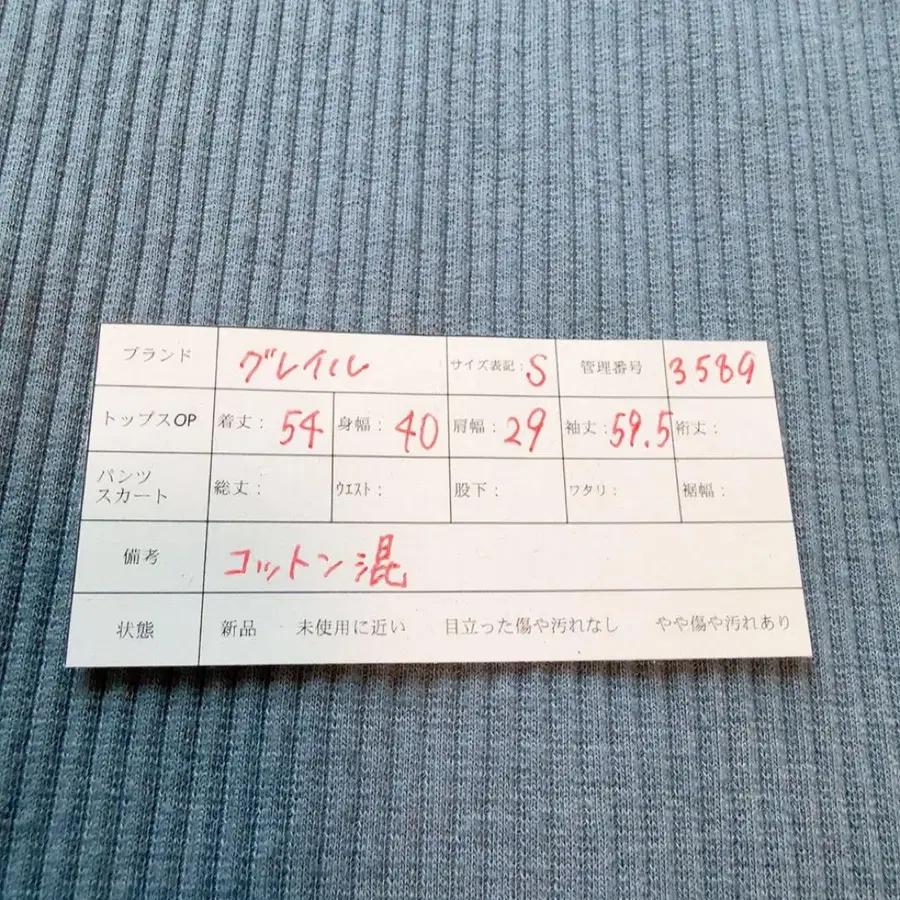 ブランド グレイル サイズ表記：S 管理番号 3589
トップスOP 着丈：54 身幅：40 肩幅：29 袖丈：59.5 裄丈：
パンツ
スカート 総丈： ウエスト： 股下： ワタリ： 裾幅：
備考 コットン混
状態 新品 未使用に近い 目立った傷や汚れなし やや傷や汚れあり